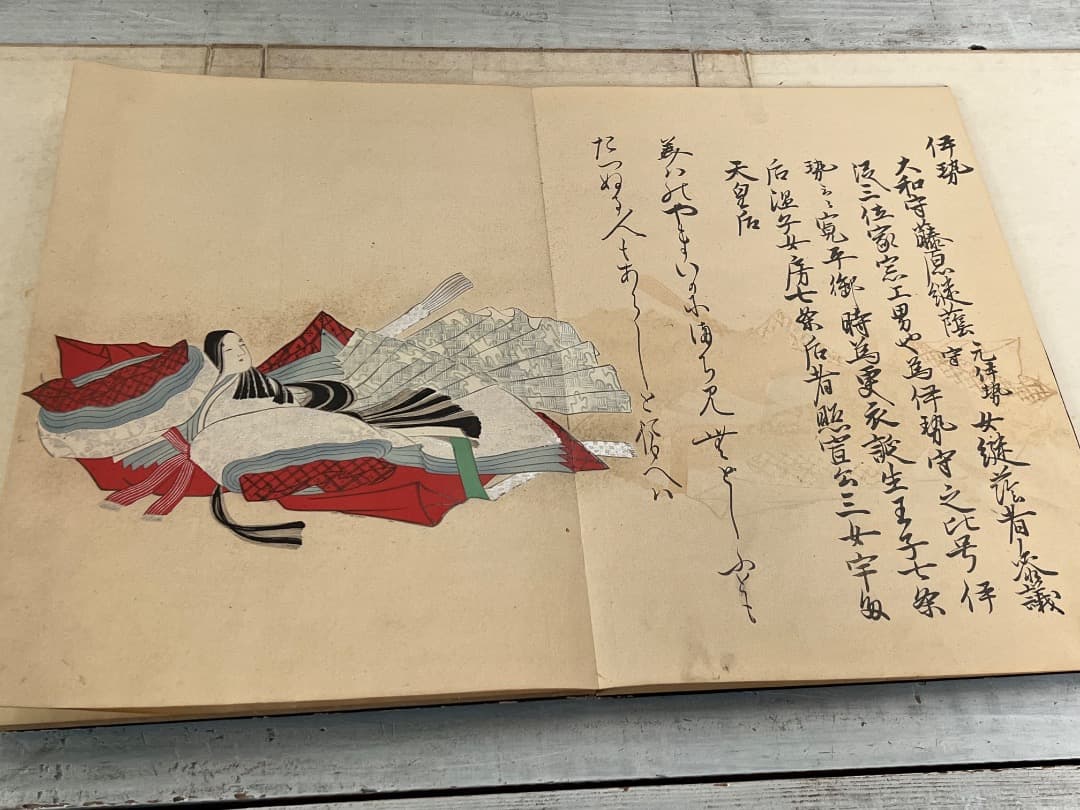 伊勢
大和守藤原継蔭元伊勢守女継蔭者参議
従三位家宗二男也為伊勢守之比号伊
勢云々寛平御時為更衣誕生王子七条
后温子女房七条后者昭宣公三女宇多
天皇后
みわのやまいかにまち見むとしふとも
たつぬる人もあらしとおもへは